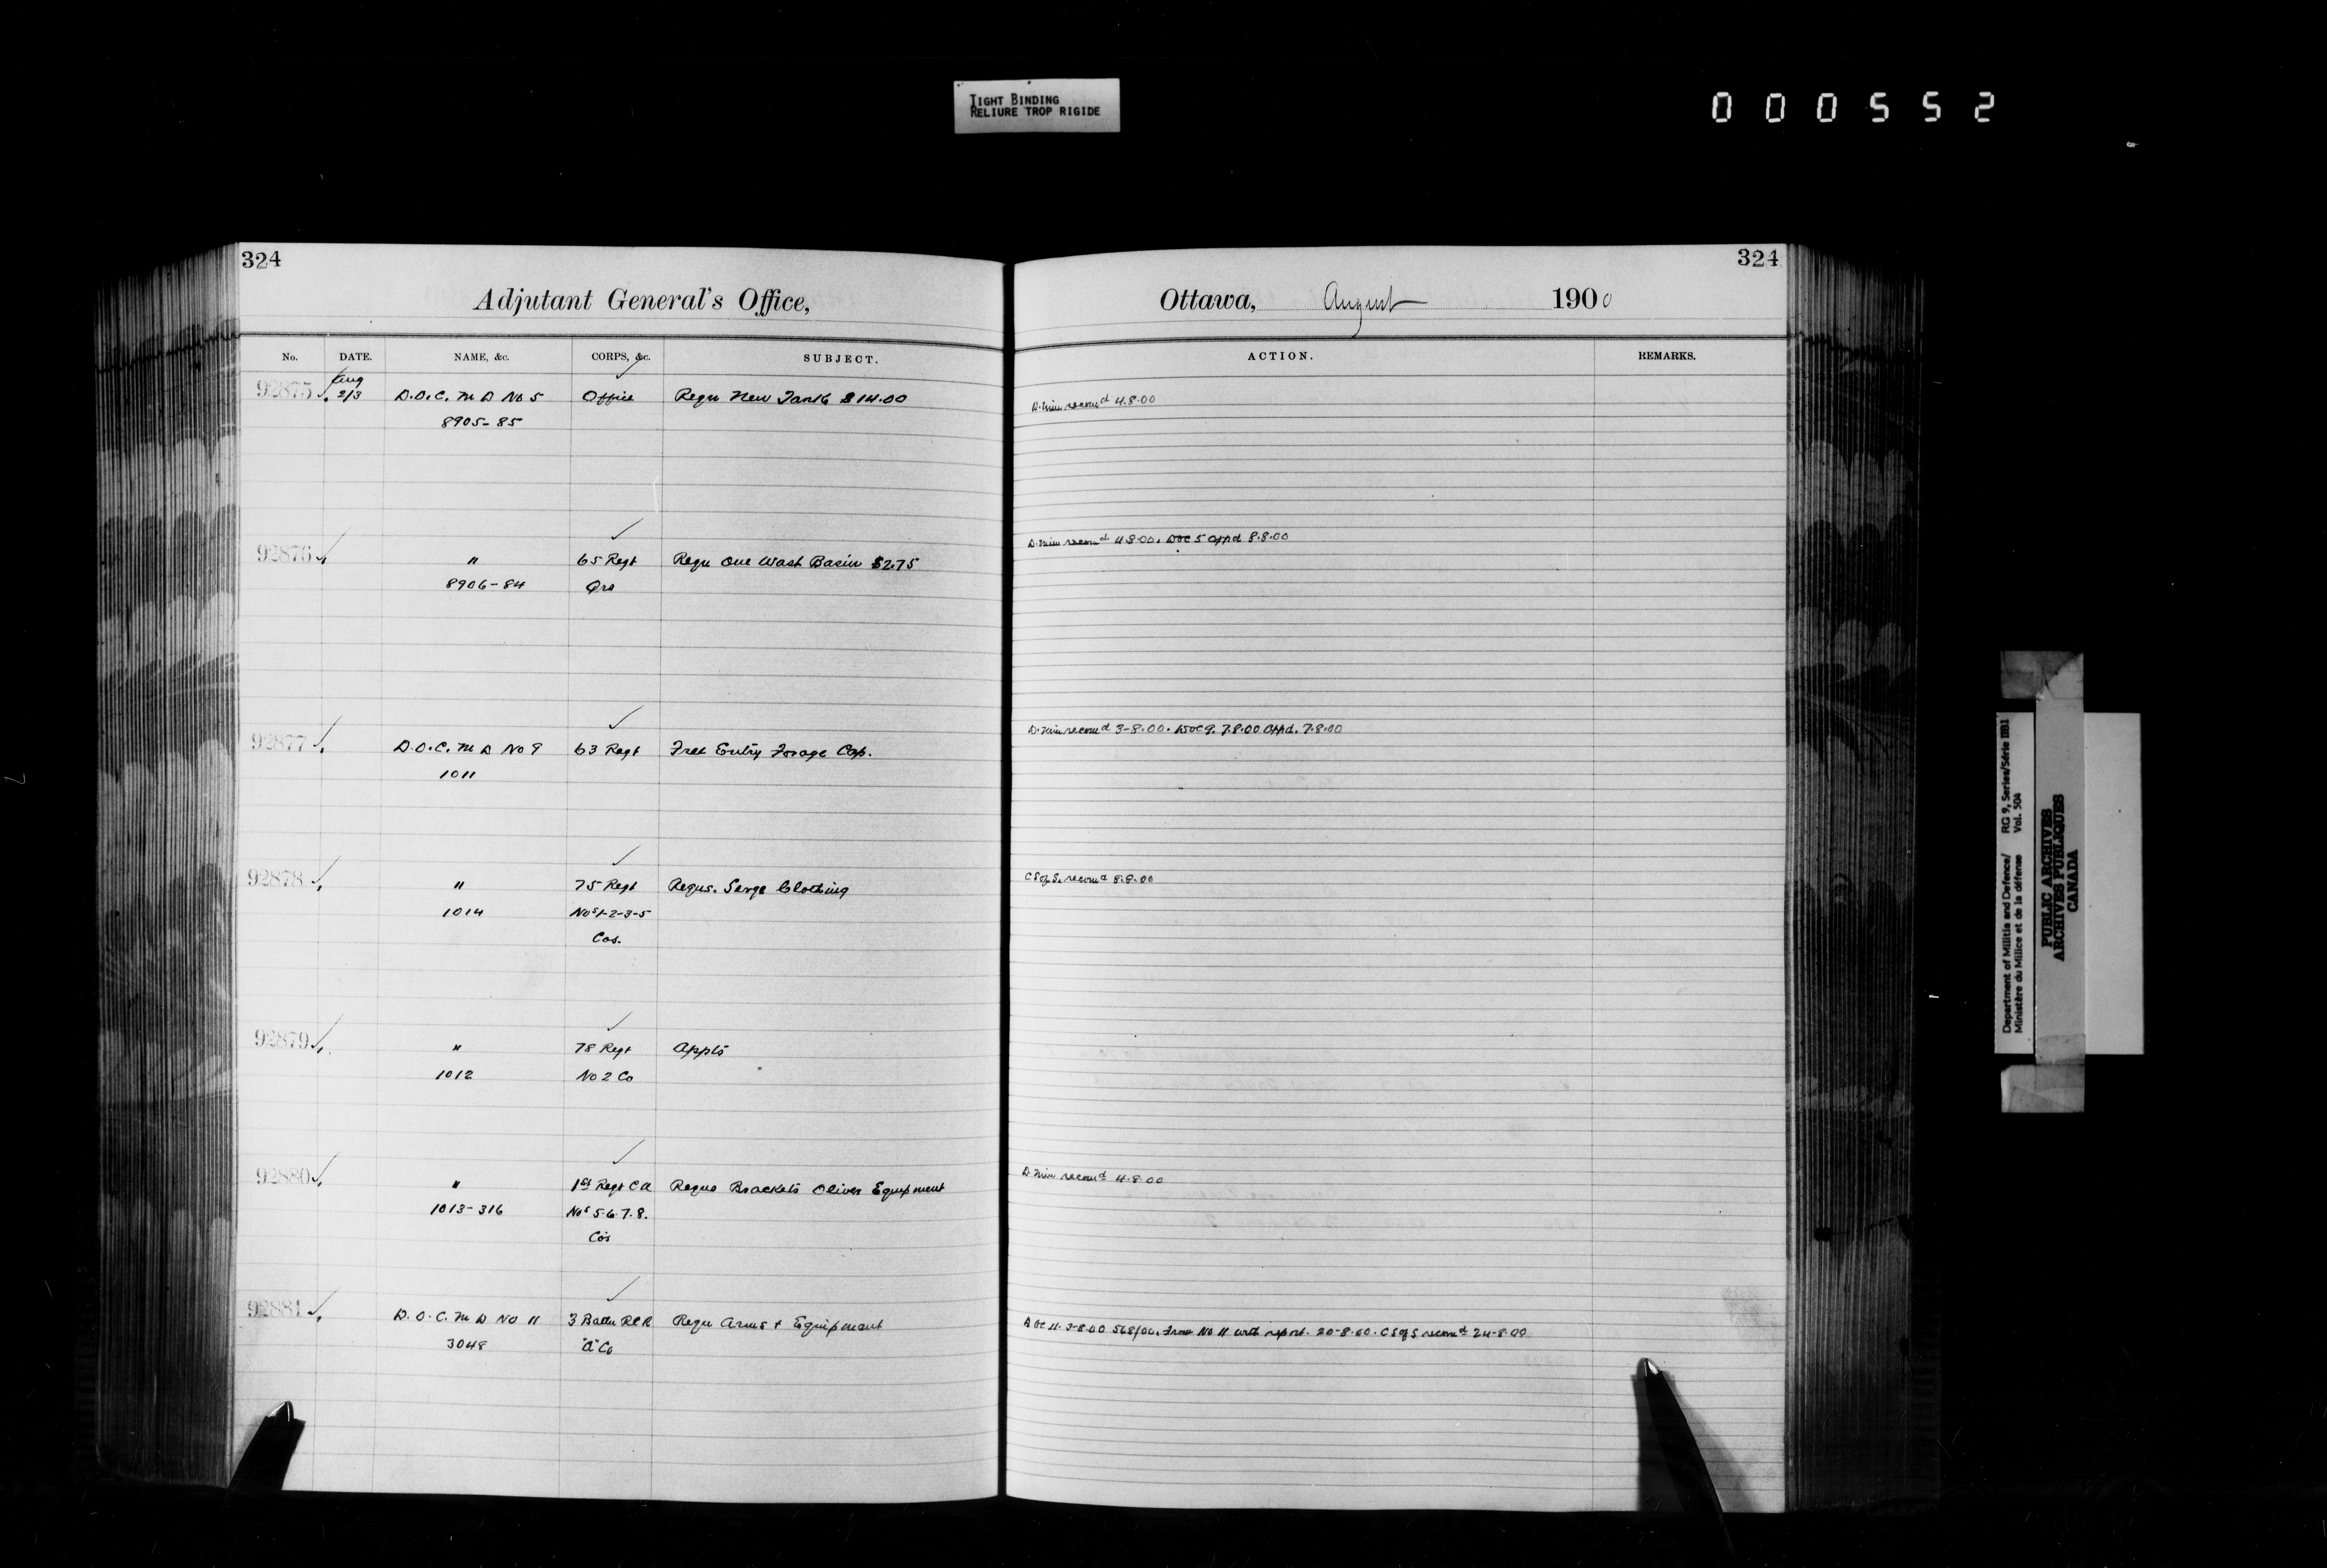 TIGHT BINDING
RELIURE TROP RIGIDE
000552
324
Adjutant General's Office,
No. DATE. NAME, &c. CORPS, &c. SUBJECT.
Aug
92875 2/3 D.O.C. M D No 5 Office Requ New Tank $14.00
8905-85
92876 " 65 Regt Requ One Wash Basin $2.75
8906-84
92877 D.O.C. M D No 9 63 Regt Free Entry Forage Cap.
1011
92878 " 75 Regt Requs. Serge Clothing
1014 Nos 1-2-3-5
Cos.
92879 " 78 Regt Appts
1012 No 2 Co
92880 " 1st Regt C A Requs Brackets Oliver Equipment
1013-316 Nos 5.6.7.8.
Cos
92881 D.O.C. M D No 11 3 Battn RCR Requ Arms + Equipment
3048 "A" Co
324
Ottawa, August 1900
ACTION. REMARKS.
D. Min recomd 4.8.00
D. Min recomd 4.8.00. DOC 5 Appd 8.8.00
D. Min recomd 3-8.00. DOC 9. 7.8.00 Appd. 7.8.00
C S of S. recomd 8.8.00
D. Min recomd 4.8.00
DOC 11. 3-8.00 568/00. From No 11 with report. 20-8.00. C S of S recomd 24-8.00
Department of Militia and Defence/ RG 9, Series/Série IIB1
Ministère du Milice et de la défense Vol. 504
PUBLIC ARCHIVES
ARCHIVES PUBLIQUES
CANADA